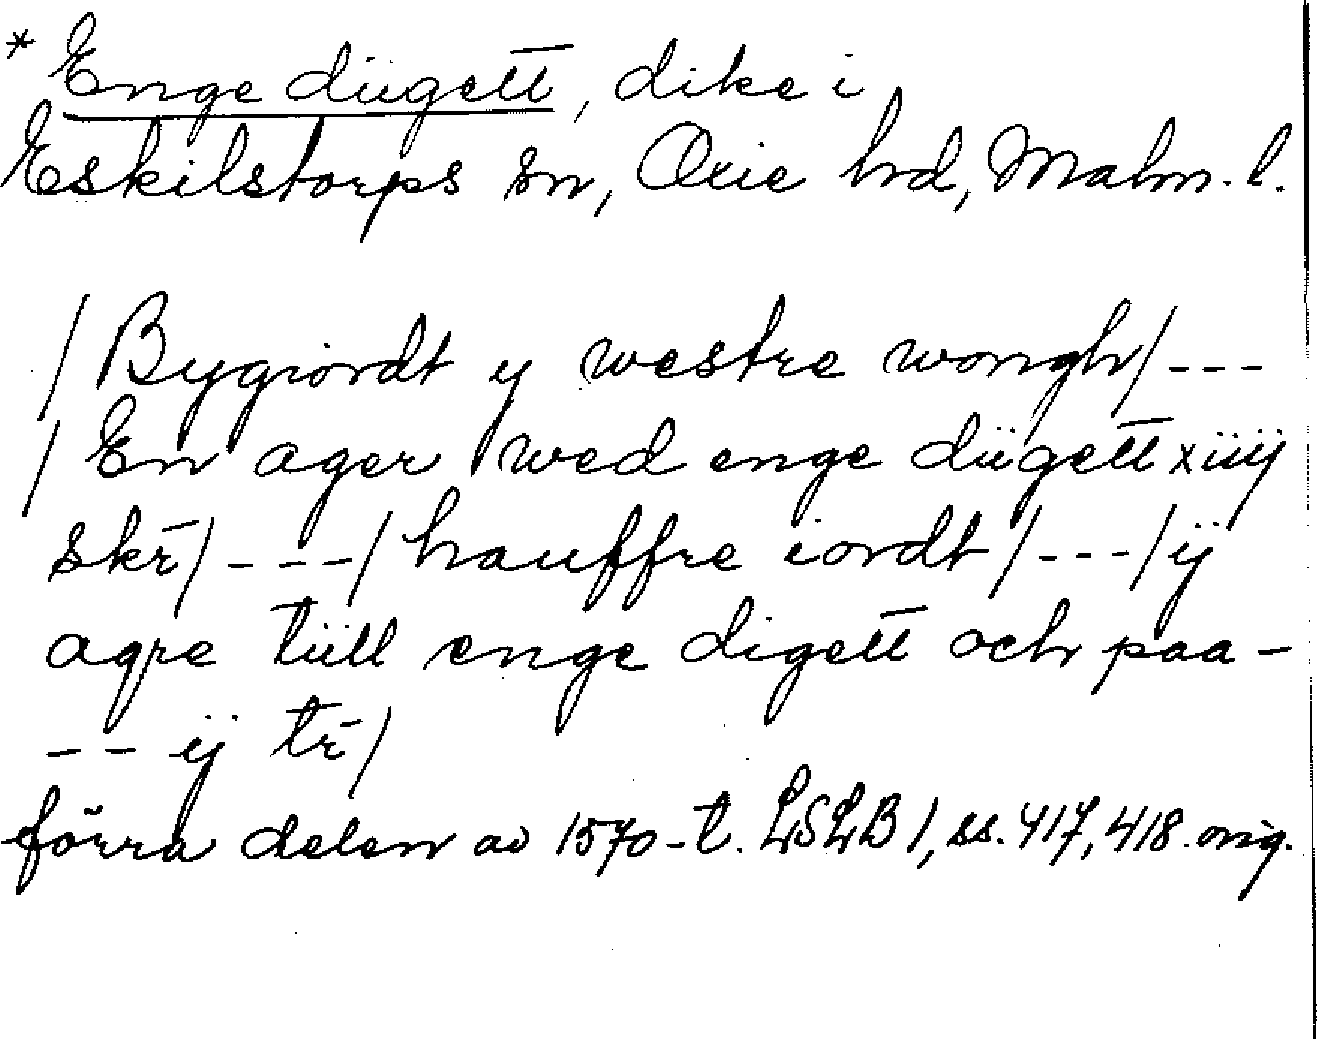 * Enge düget̅t̅, dike i
Eskilstorps sn, Oxie hd, Malm. l.
/ Bygiordt y westre wongh / ---
/ En ager wed enge düget̅t̅ xiiij
skr̄ / --- / hauffre iordt / --- / ij
agre tüll enge diget̅t̅ och paa -
-- ij tr̄ /
förra delen av 1570-t. LSLB 1, ss. 417, 418. orig.